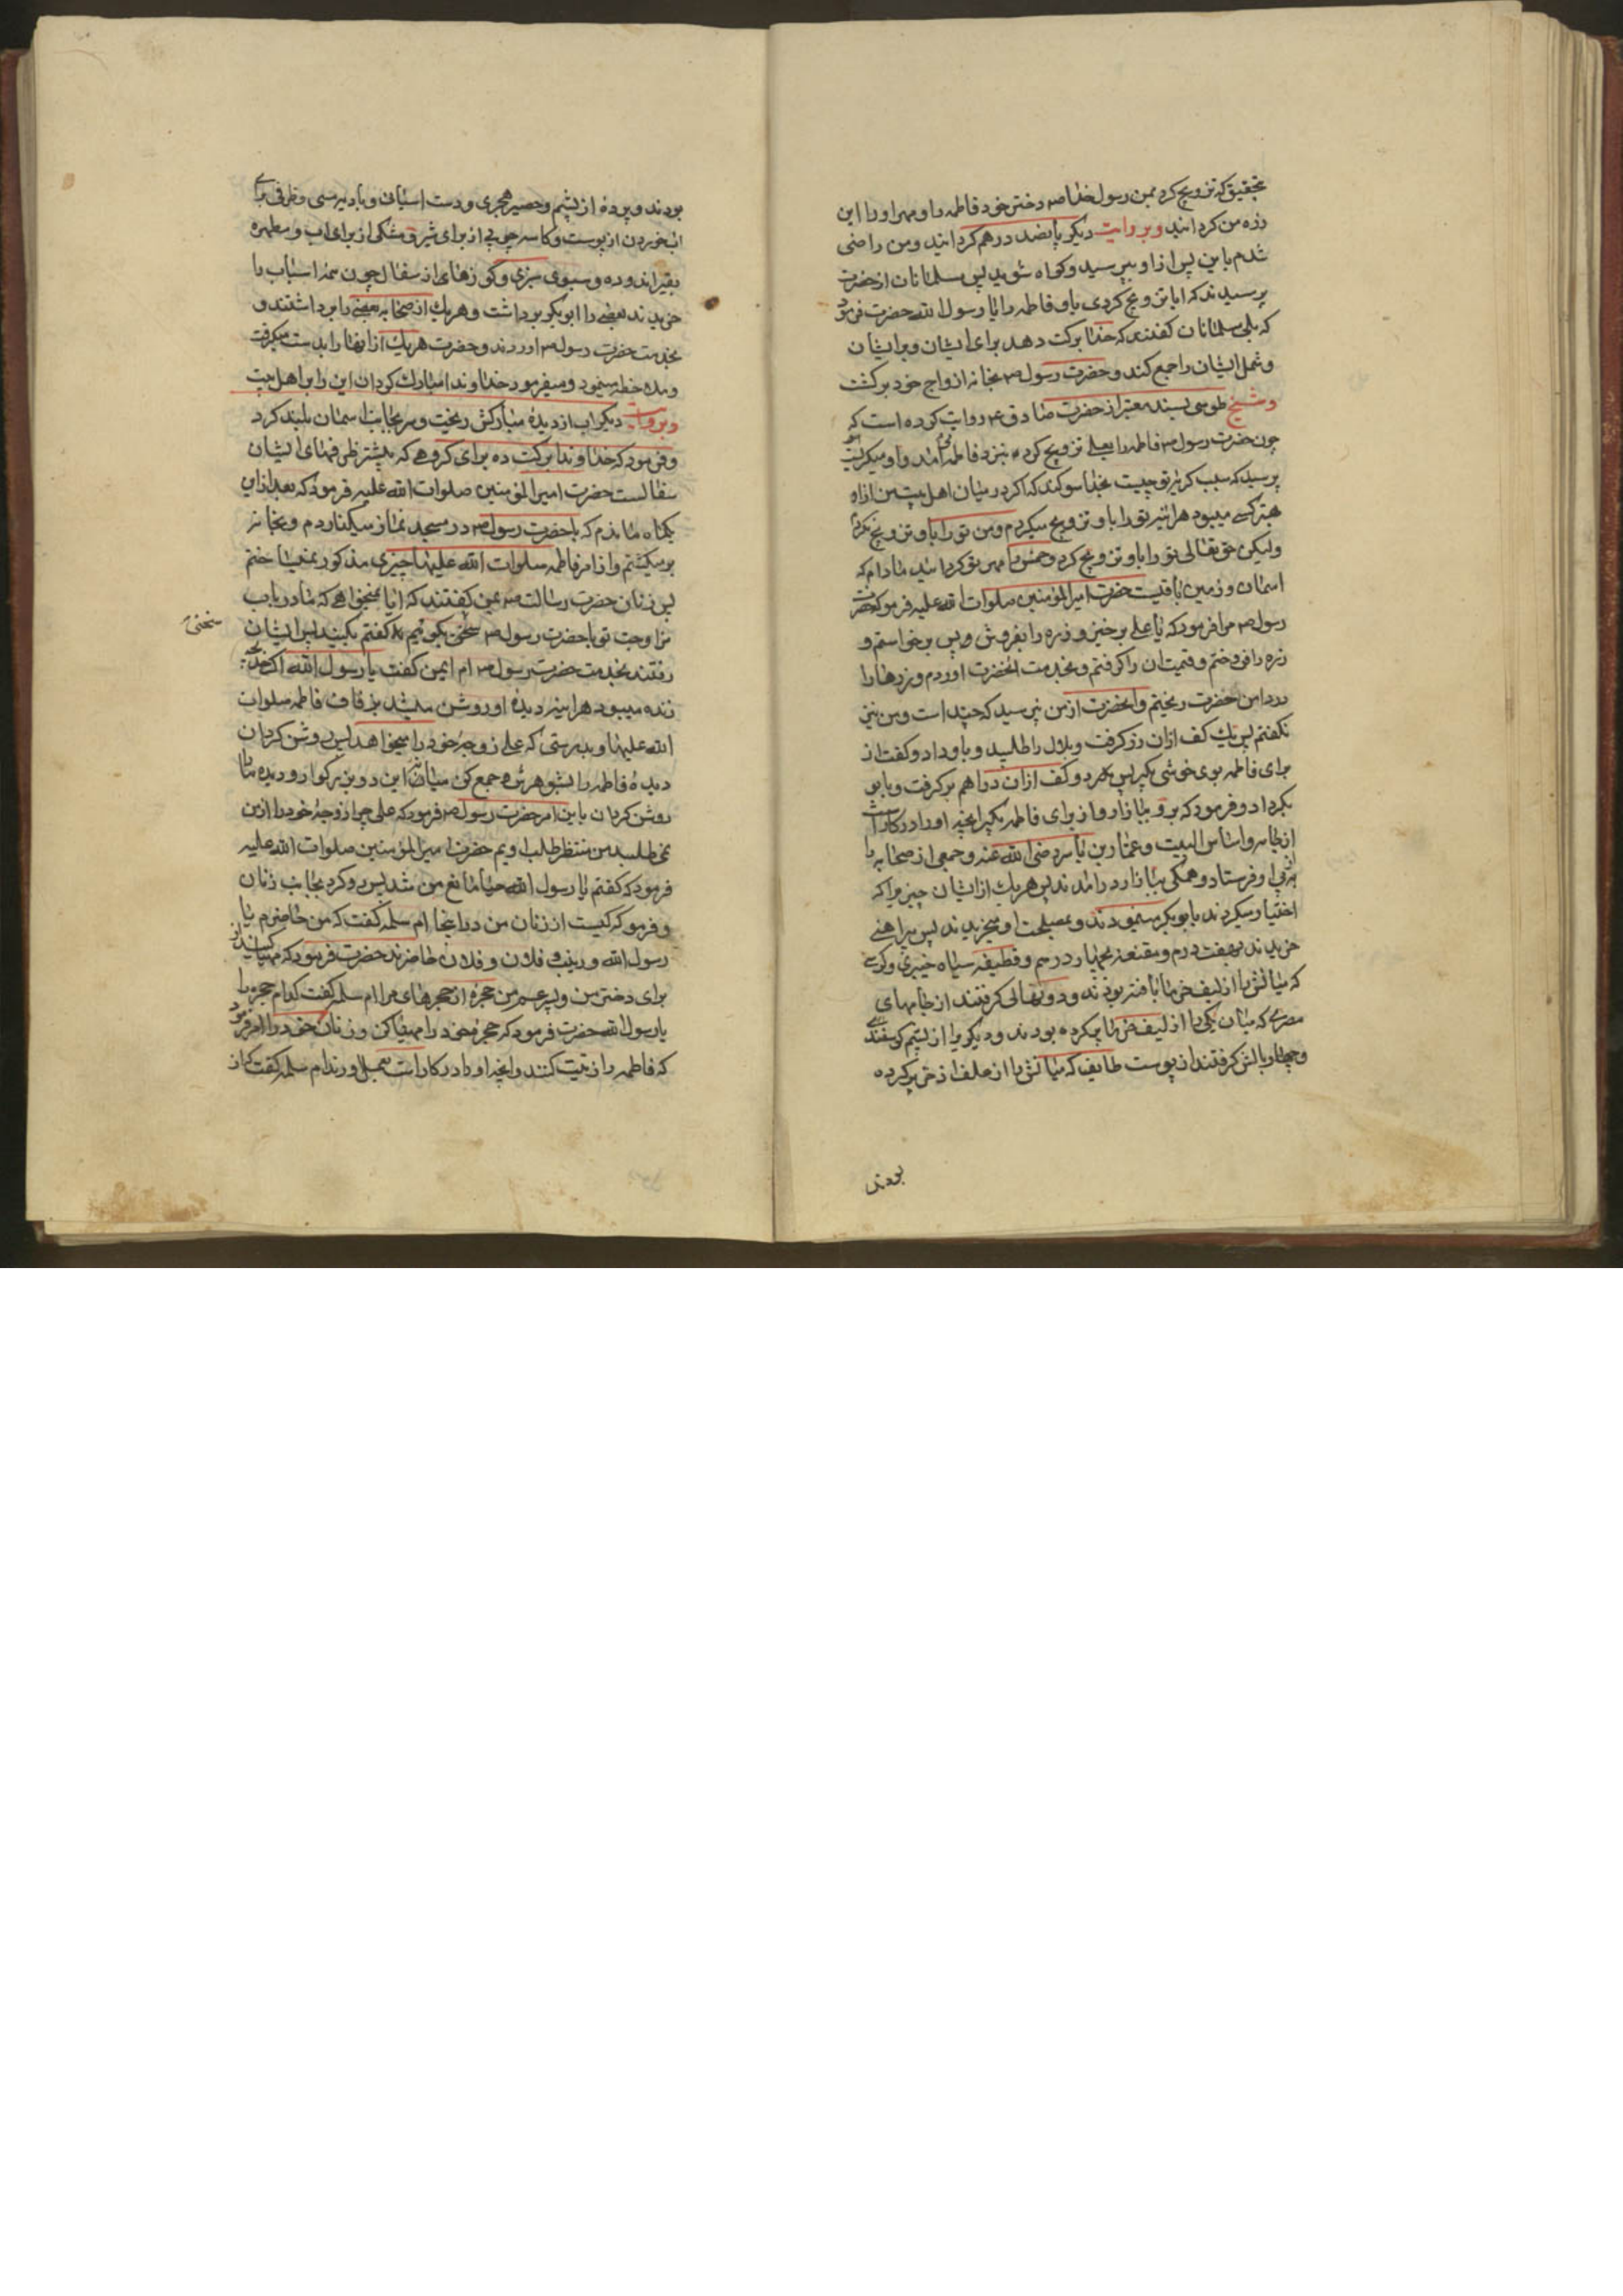 بتحقیق که تزویج کرد بمن رسول خدا ص دختر خود فاطمه را و مهر او را این
زره من کردانید و بروایت دیکر پانصد درهم کردانید و من راضی
شدم باین پس از او بپرسید و کواه شوید پس مسلمانان از حضرت
پرسیدند که ایا تزویج کردی باو فاطمه را یا رسول الله حضرت فرمود
که بلی مسلمانان کفتند که خدا برکت دهد برای ایشان و بر ایشان
و شمل ایشان را جمع کند و حضرت رسول ص بخانه ازواج خود برکشت
و شیخ طوسی بسند معتبر از حضرت صادق ع روایت کرده است که
چون حضرت رسول ص فاطمه را بعلی تزویج کرد بنزد فاطمه امد و او میکریست
پرسید که سبب کریه تو چیست بخدا سوکند که اکر در میان اهل بیت من از او
بهتر کسی میبود هراینه تو را باو تزویج میکردم و من تو را باو تزویج نکردم
ولیکن حق تعالی تو را باو تزویج کرد و خمس را مهر تو کردانید مادام که
اسمان و زمین باقیست حضرت امیر المؤمنین صلوات الله علیه فرمود که حضرت
رسول ص مرا فرمود که یا علی برخیز و زره را بفروش و پس برخواستم و
زره را فروختم و قیمت ان را کرفتم و بخدمت انحضرت اوردم و زرها را
در دامن حضرت ریختم و انحضرت از من نپرسید که چند است و من نیز
نکفتم پس یک کف ازان زر کرفت و بلال را طلبید و باو داد و کفت از
برای فاطمه بوی خوشی بکیر پس دو کف ازان دراهم برکرفت و بابو
بکر داد و فرمود که برو ببازار و از برای فاطمه بکیر انچه او را در کار است
از جامه و اساس البیت و عمار بن یاسر رضی الله عنه و جمعی از صحابه را
از پی او فرستاد و همکی ببازار در امدند پس هریک از ایشان چیزیرا که
اختیار میکردند بابو بکر مینمودند و بمصلحت او میخریدند پس پیراهنی
خریدند بهفت درم و مقنعه بچهار درهم و قطیفه سیاه خیبری و کرسی
که میانش را از لیف خرما بافته بودند و دو نهالی کرفتند از جامهای
مصری که میان یکی را از لیف خرما پر کرده بودند و دیکری را از پشم کوسفند
و چهار بالش کرفتند از پوست طایف که میانش را از علف اذخر پر کرده
بودند
بودند و پرده از پشم و حصیر هجری و دست اسیائی و بادیه مسی و ظرفی برای
اب خوردن از پوست و کاسه چوبی از برای شیر و مشکی از برای اب و مطهره
بقیر اندوده و سبوی سبزی و کوزهای از سفال چون همه اسباب را
خریدند بعضی را ابو بکر برداشت و هریک از صحابه بعضی را برداشتند و
بخدمت حضرت رسول ص اوردند و حضرت هریک از انها را بدست میکرفت
و ملاحظه مینمود و میفرمود خداوندا مبارک کردان این را بر اهل بیت
و بروایت دیکر اب از دیده مبارکش ریخت و سر بجانب اسمان بلند کرد
و فرمود که خداوندا برکت ده برای کروهی که بیشتر ظرفهای ایشان
سفالست حضرت امیر المؤمنین صلوات الله علیه فرمود که بعد ازان
یکماه ماندم که با حضرت رسول ص در مسجد نماز میکذاردم و بخانه
برمیکشتم و از امر فاطمه صلوات الله علیها چیزی مذکور نمیساختم
پس زنان حضرت رسالت ص بمن کفتند که ایا نمیخواهی که ما در باب
مزاوجت تو با حضرت رسول ص سخنی بکوئیم کفتم بکنید پس ایشان
سخنی
رفتند بخدمت حضرت رسول ص ام ایمن کفت یا رسول الله اکر خدیجه
زنده میبود هراینه دیده او روشن میشد بزفاف فاطمه صلوات
الله علیها و بدرستی که علی زوجه خود را میخواهد پس روشن کردان
دیده فاطمه را بشوهرش و جمع کن میان این دو بزرکوار و دیده ما را
روشن کردان باین امر حضرت رسول ص فرمود که علی چرا زوجه خود را از من
نمیطلبد من منتظر طلب اویم حضرت امیر المؤمنین صلوات الله علیه
فرمود که کفتم یا رسول الله حیا مانع من شد پس رو کرد بجانب زنان
و فرمود که کیست از زنان من در اینجا ام سلمه کفت که من حاضرم یا
رسول الله و زینب و فلان و فلان حاضرند حضرت فرمود که مهیا کنید از
برای دختر من و پسر عم من حجره از حجرهای مرا ام سلمه کفت کدام حجره را
یا رسول الله حضرت فرمود که حجره خود را مهیا کن و زنان خود را امر فرمود
که فاطمه را زینت کنند و انچه او را در کار است بعمل اورند ام سلمه کفت که از